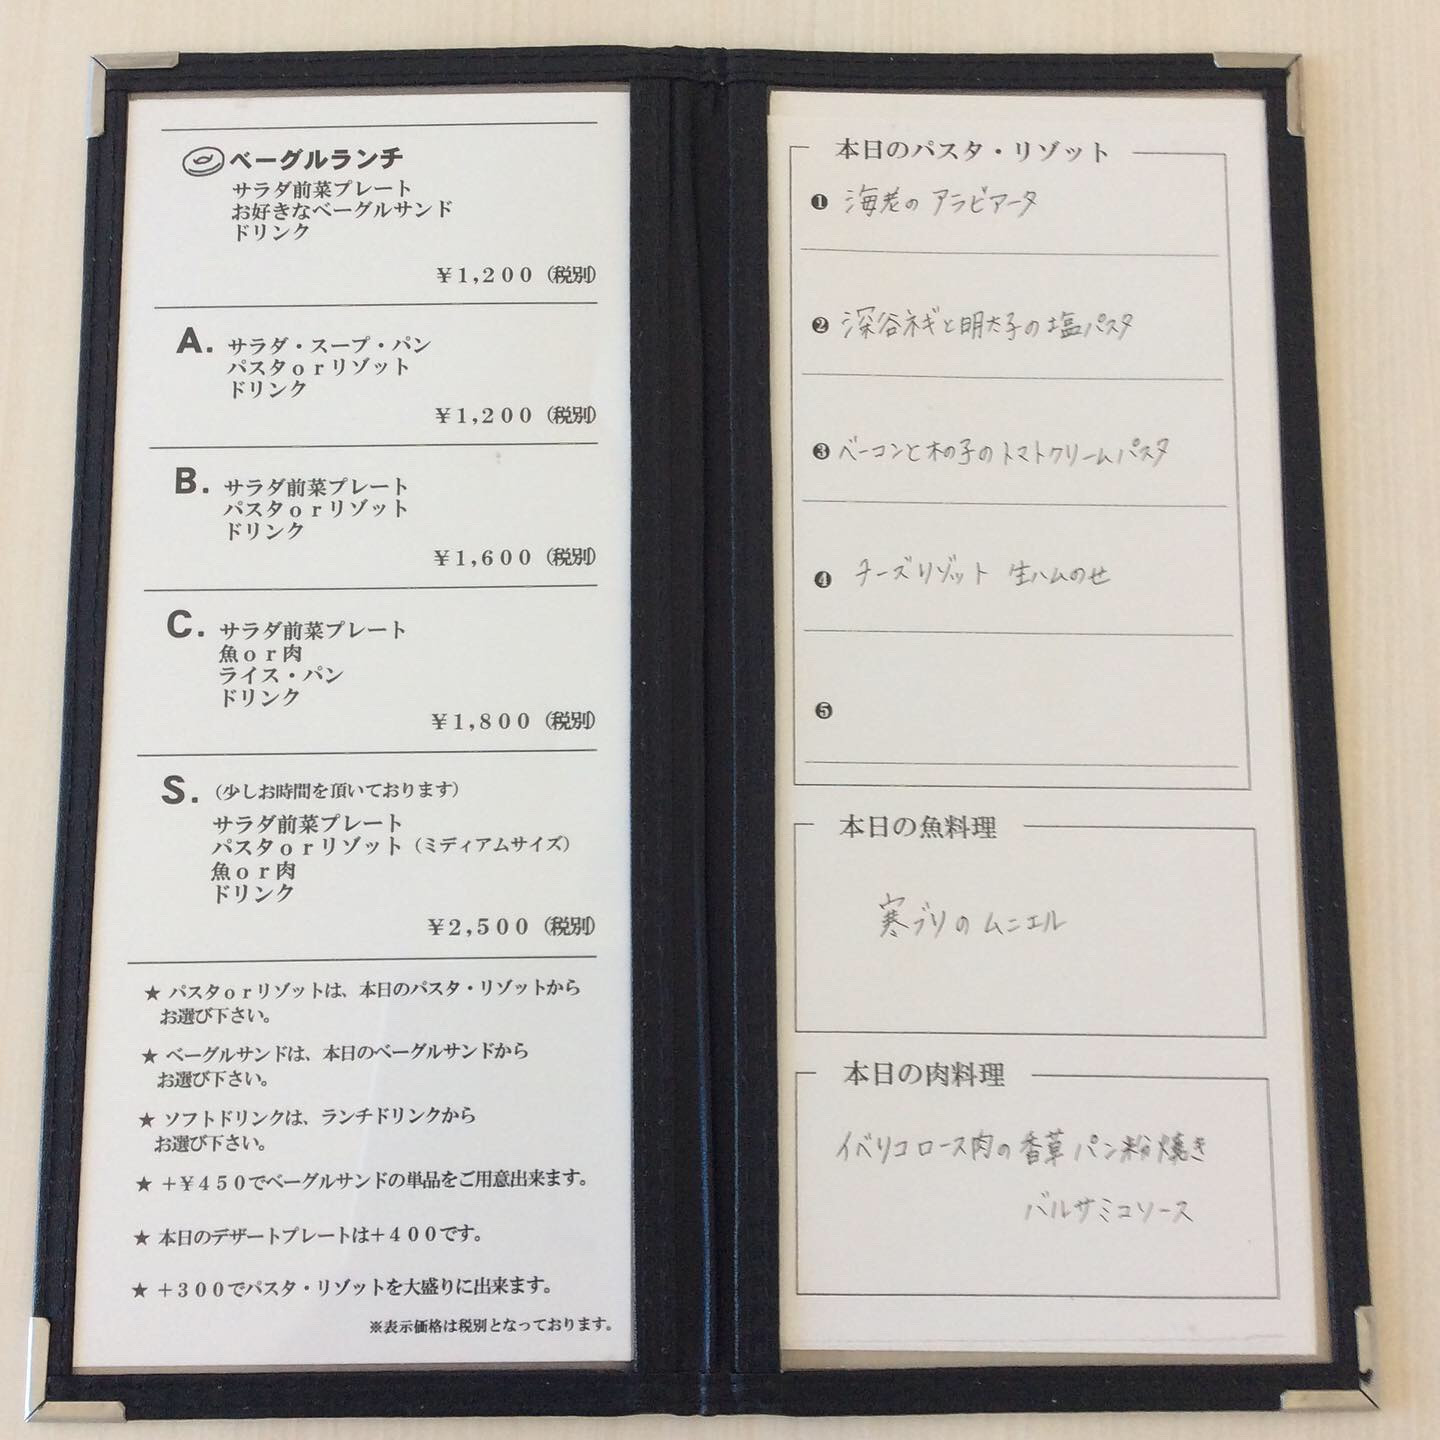 ベーグルランチ
サラダ前菜プレート
お好きなベーグルサンド
ドリンク
￥1,200（税別）
A. サラダ・スープ・パン
パスタorリゾット
ドリンク
￥1,200（税別）
B. サラダ前菜プレート
パスタorリゾット
ドリンク
￥1,600（税別）
C. サラダ前菜プレート
魚or肉
ライス・パン
ドリンク
￥1,800（税別）
S.（少しお時間を頂いております）
サラダ前菜プレート
パスタorリゾット（ミディアムサイズ）
魚or肉
ドリンク
￥2,500（税別）
★ パスタorリゾットは、本日のパスタ・リゾットから
お選び下さい。
★ ベーグルサンドは、本日のベーグルサンドから
お選び下さい。
★ ソフトドリンクは、ランチドリンクから
お選び下さい。
★ +￥450でベーグルサンドの単品をご用意出来ます。
★ 本日のデザートプレートは+400です。
★ +300でパスタ・リゾットを大盛りに出来ます。
※表示価格は税別となっております。
本日のパスタ・リゾット
❶ 海老の アラビアータ
❷ 深谷ネギと明太子の塩パスタ
❸ ベーコンと木の子のトマトクリームパスタ
❹ チーズリゾット 生ハムのせ
❺
本日の魚料理
寒ブリの ムニエル
本日の肉料理
イベリコロース肉の香草パン粉焼き
バルサミコソース